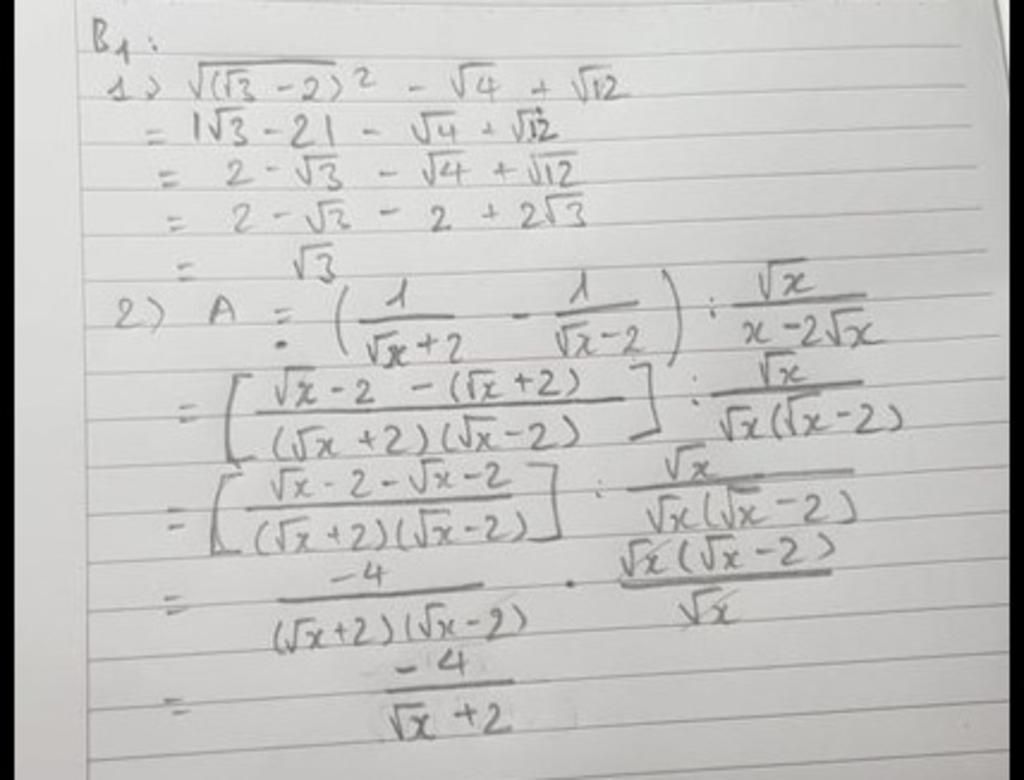 B1:
1> √(√3 - 2)² - √4 + √12
= |√3 - 2| - √4 + √12
= 2 - √3 - √4 + √12
= 2 - √3 - 2 + 2√3
= √3
2) A = (1/(√x + 2) - 1/(√x - 2)) : √x/(x - 2√x)
= [(√x - 2 - (√x + 2))/((√x + 2)(√x - 2))] : √x/(√x(√x - 2))
= [(√x - 2 - √x - 2)/((√x + 2)(√x - 2))] : √x/(√x(√x - 2))
= -4/((√x + 2)(√x - 2)) . √x(√x - 2)/√x
= -4/(√x + 2)